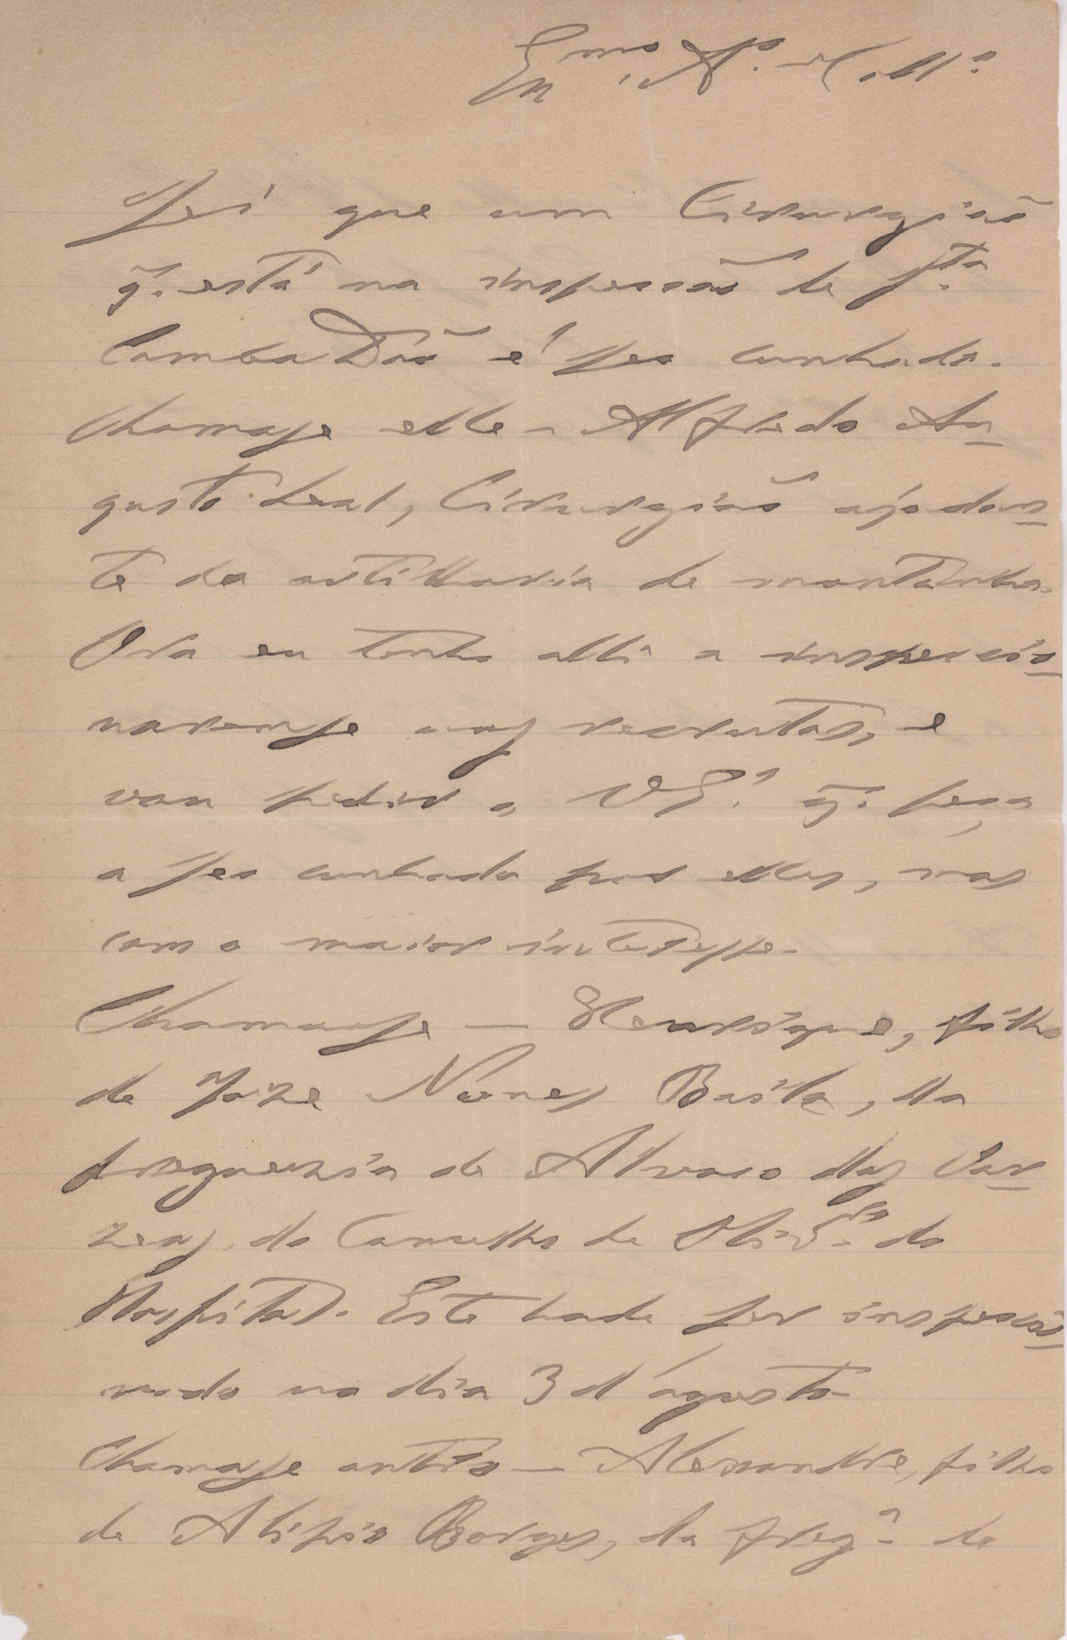 Exmo. Am.º e Col.ª
Sei que um Cirurgião
q̃. está na inspessão de Sta.
Comba Dão é seu cunhado.
Chamase elle - Alfredo Au-
gusto Leal, Cirurgião ajudan-
te da artilharia de montanha.
Ora eu tenho alli a inspeccio-
naremse uns recrutas, e
vou pedir a VEª. q̃. peça
a seu cunhado por elles, mas
com o maior interesse.
Chamamse - Henrique, filho
de Joze Nunes Basto, da
freguezia de Alvaro das Var-
zeas, do Concelho de Olivrª. do
Hospital. Este hade ser inspeccio-
nado no dia 3 d'agosto
Chamase outro - Alexandre, filho
de Alipio Borges, da fregª. de